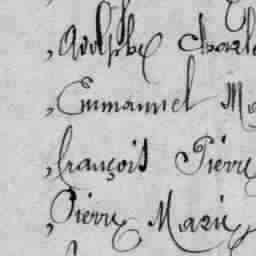 , Adolphe Charle
, Emmanuel Ma
, françois Pierre
, Pierre Marie